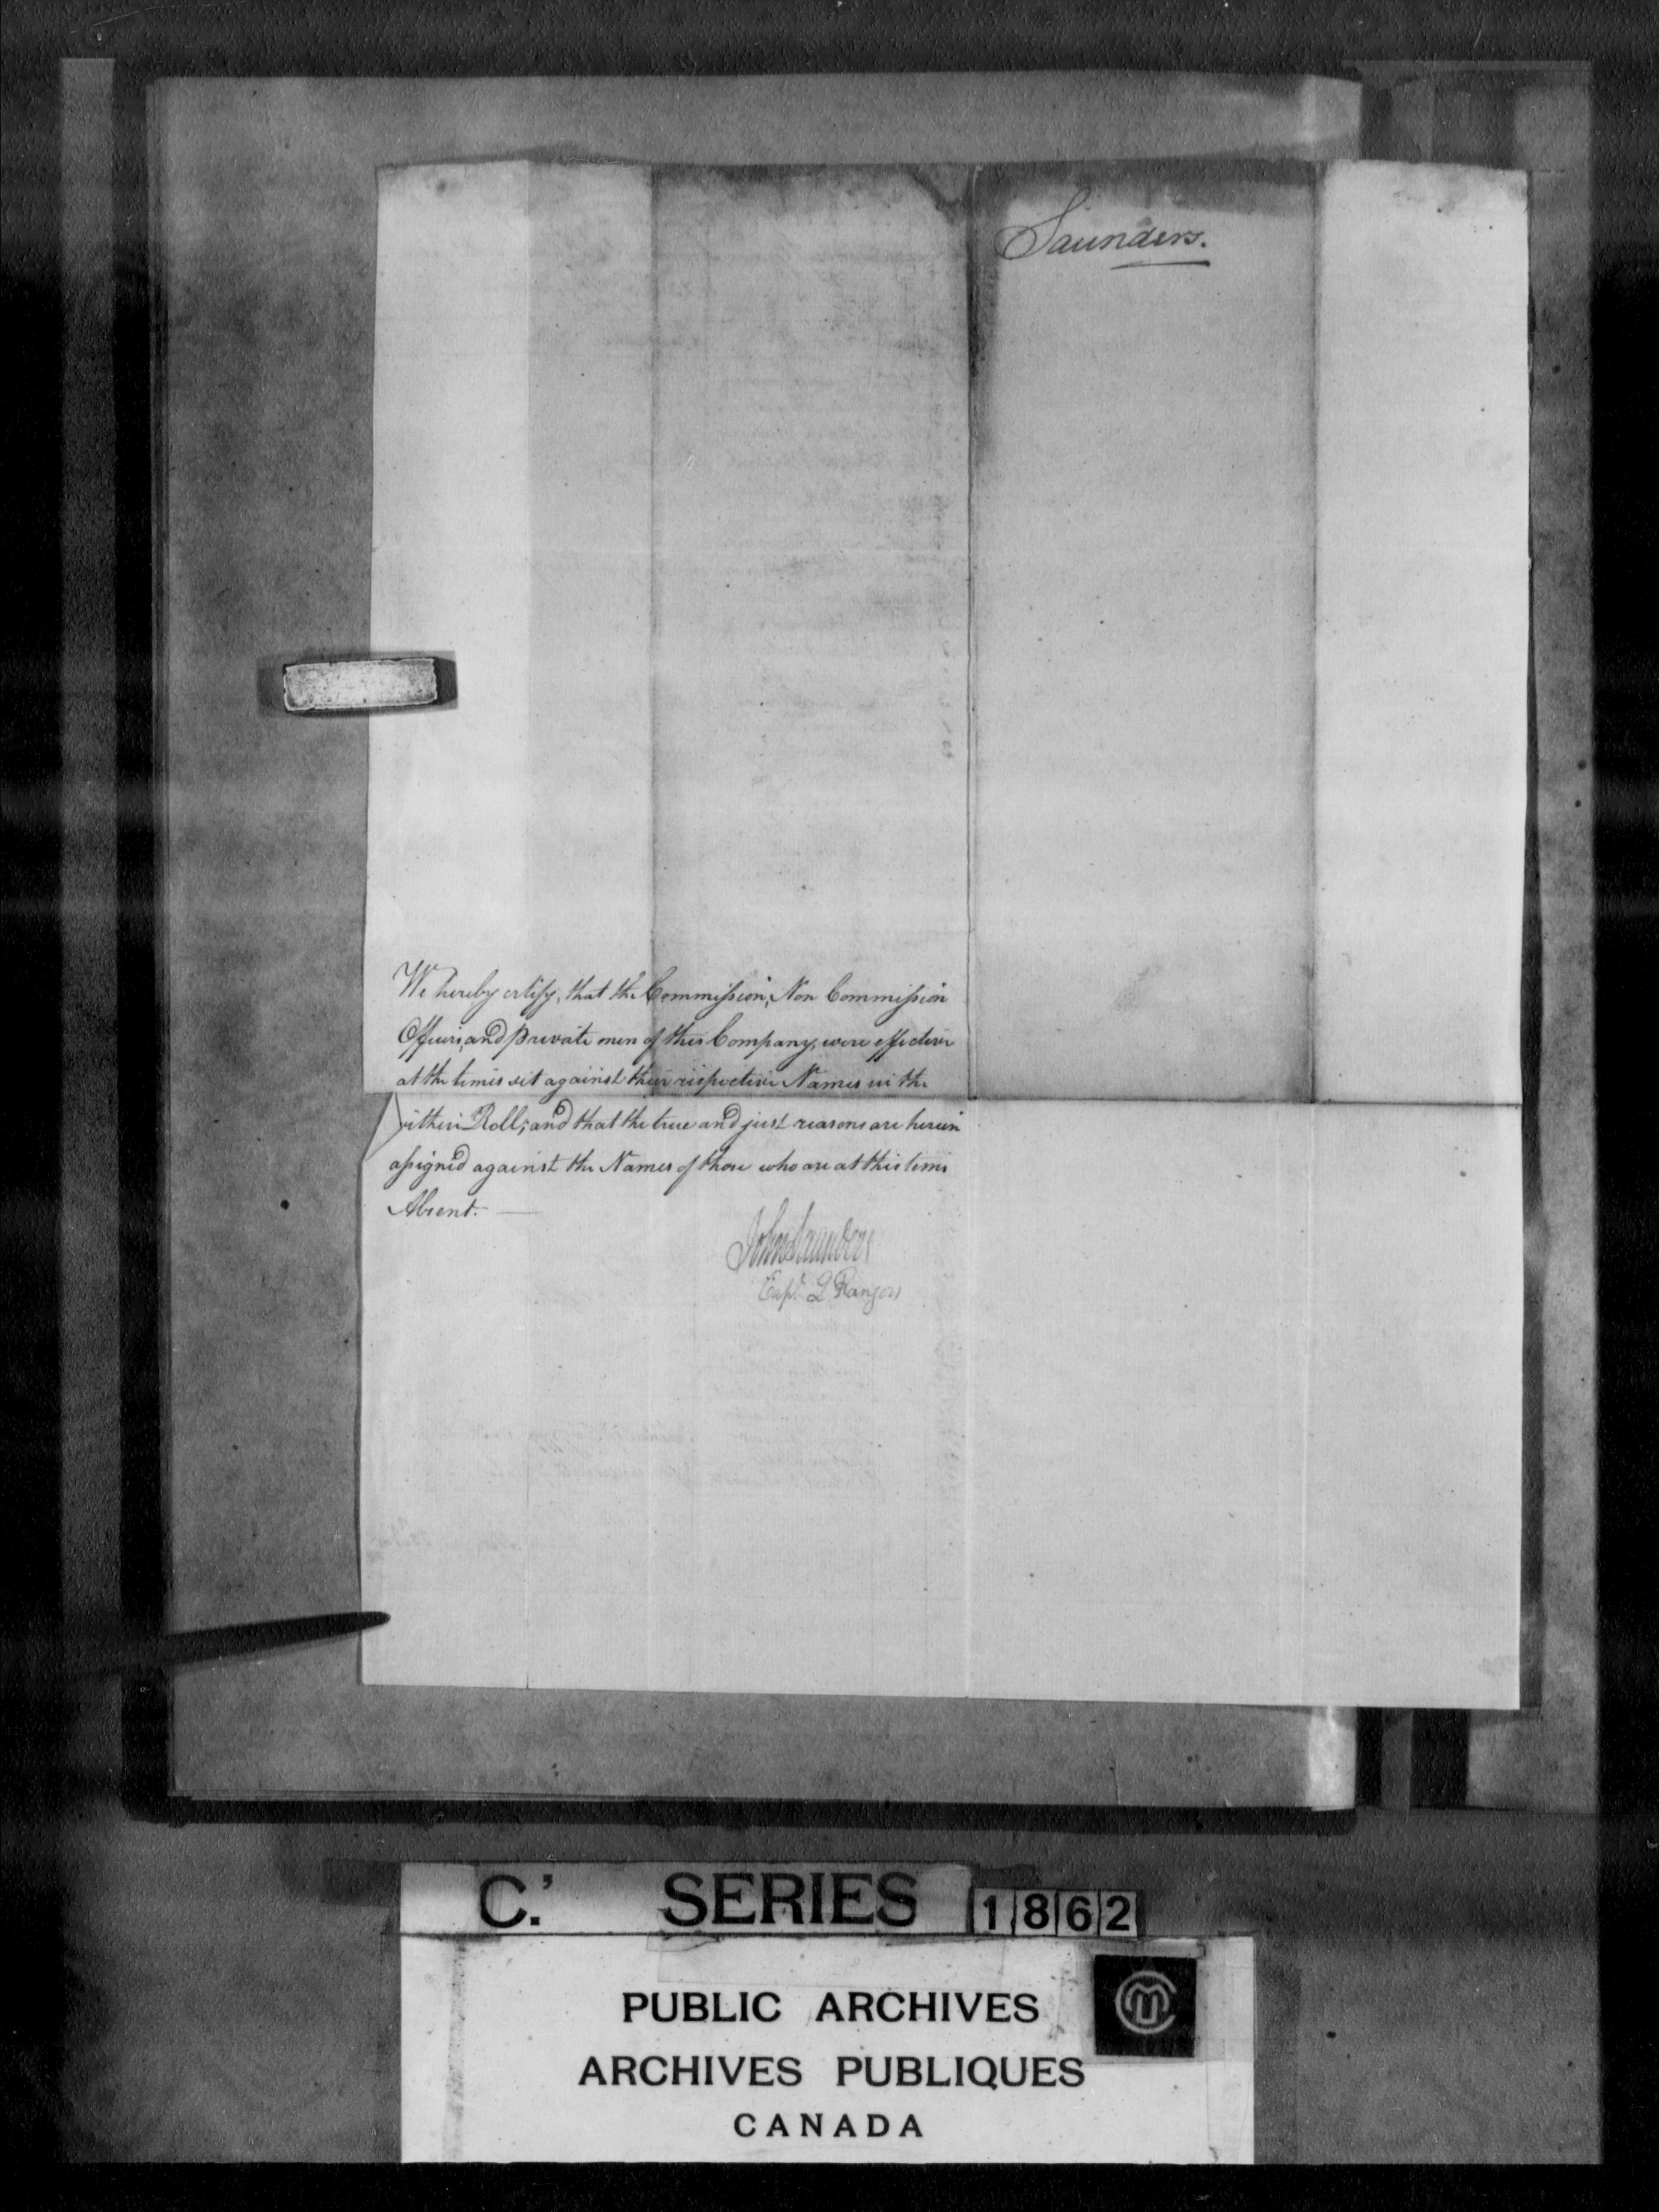 Saunders.
We hereby certify, that the Commission, Non Commission
Officers, and private men of this Company, were effective
at the times set against their respective Names in the
within Roll; and that the true and just reasons are herein
assigned against the Names of those who are at this time
Absent.
John Saunders
Capt. Q Rangers
C.' SERIES 1862
PUBLIC ARCHIVES
ARCHIVES PUBLIQUES
CANADA